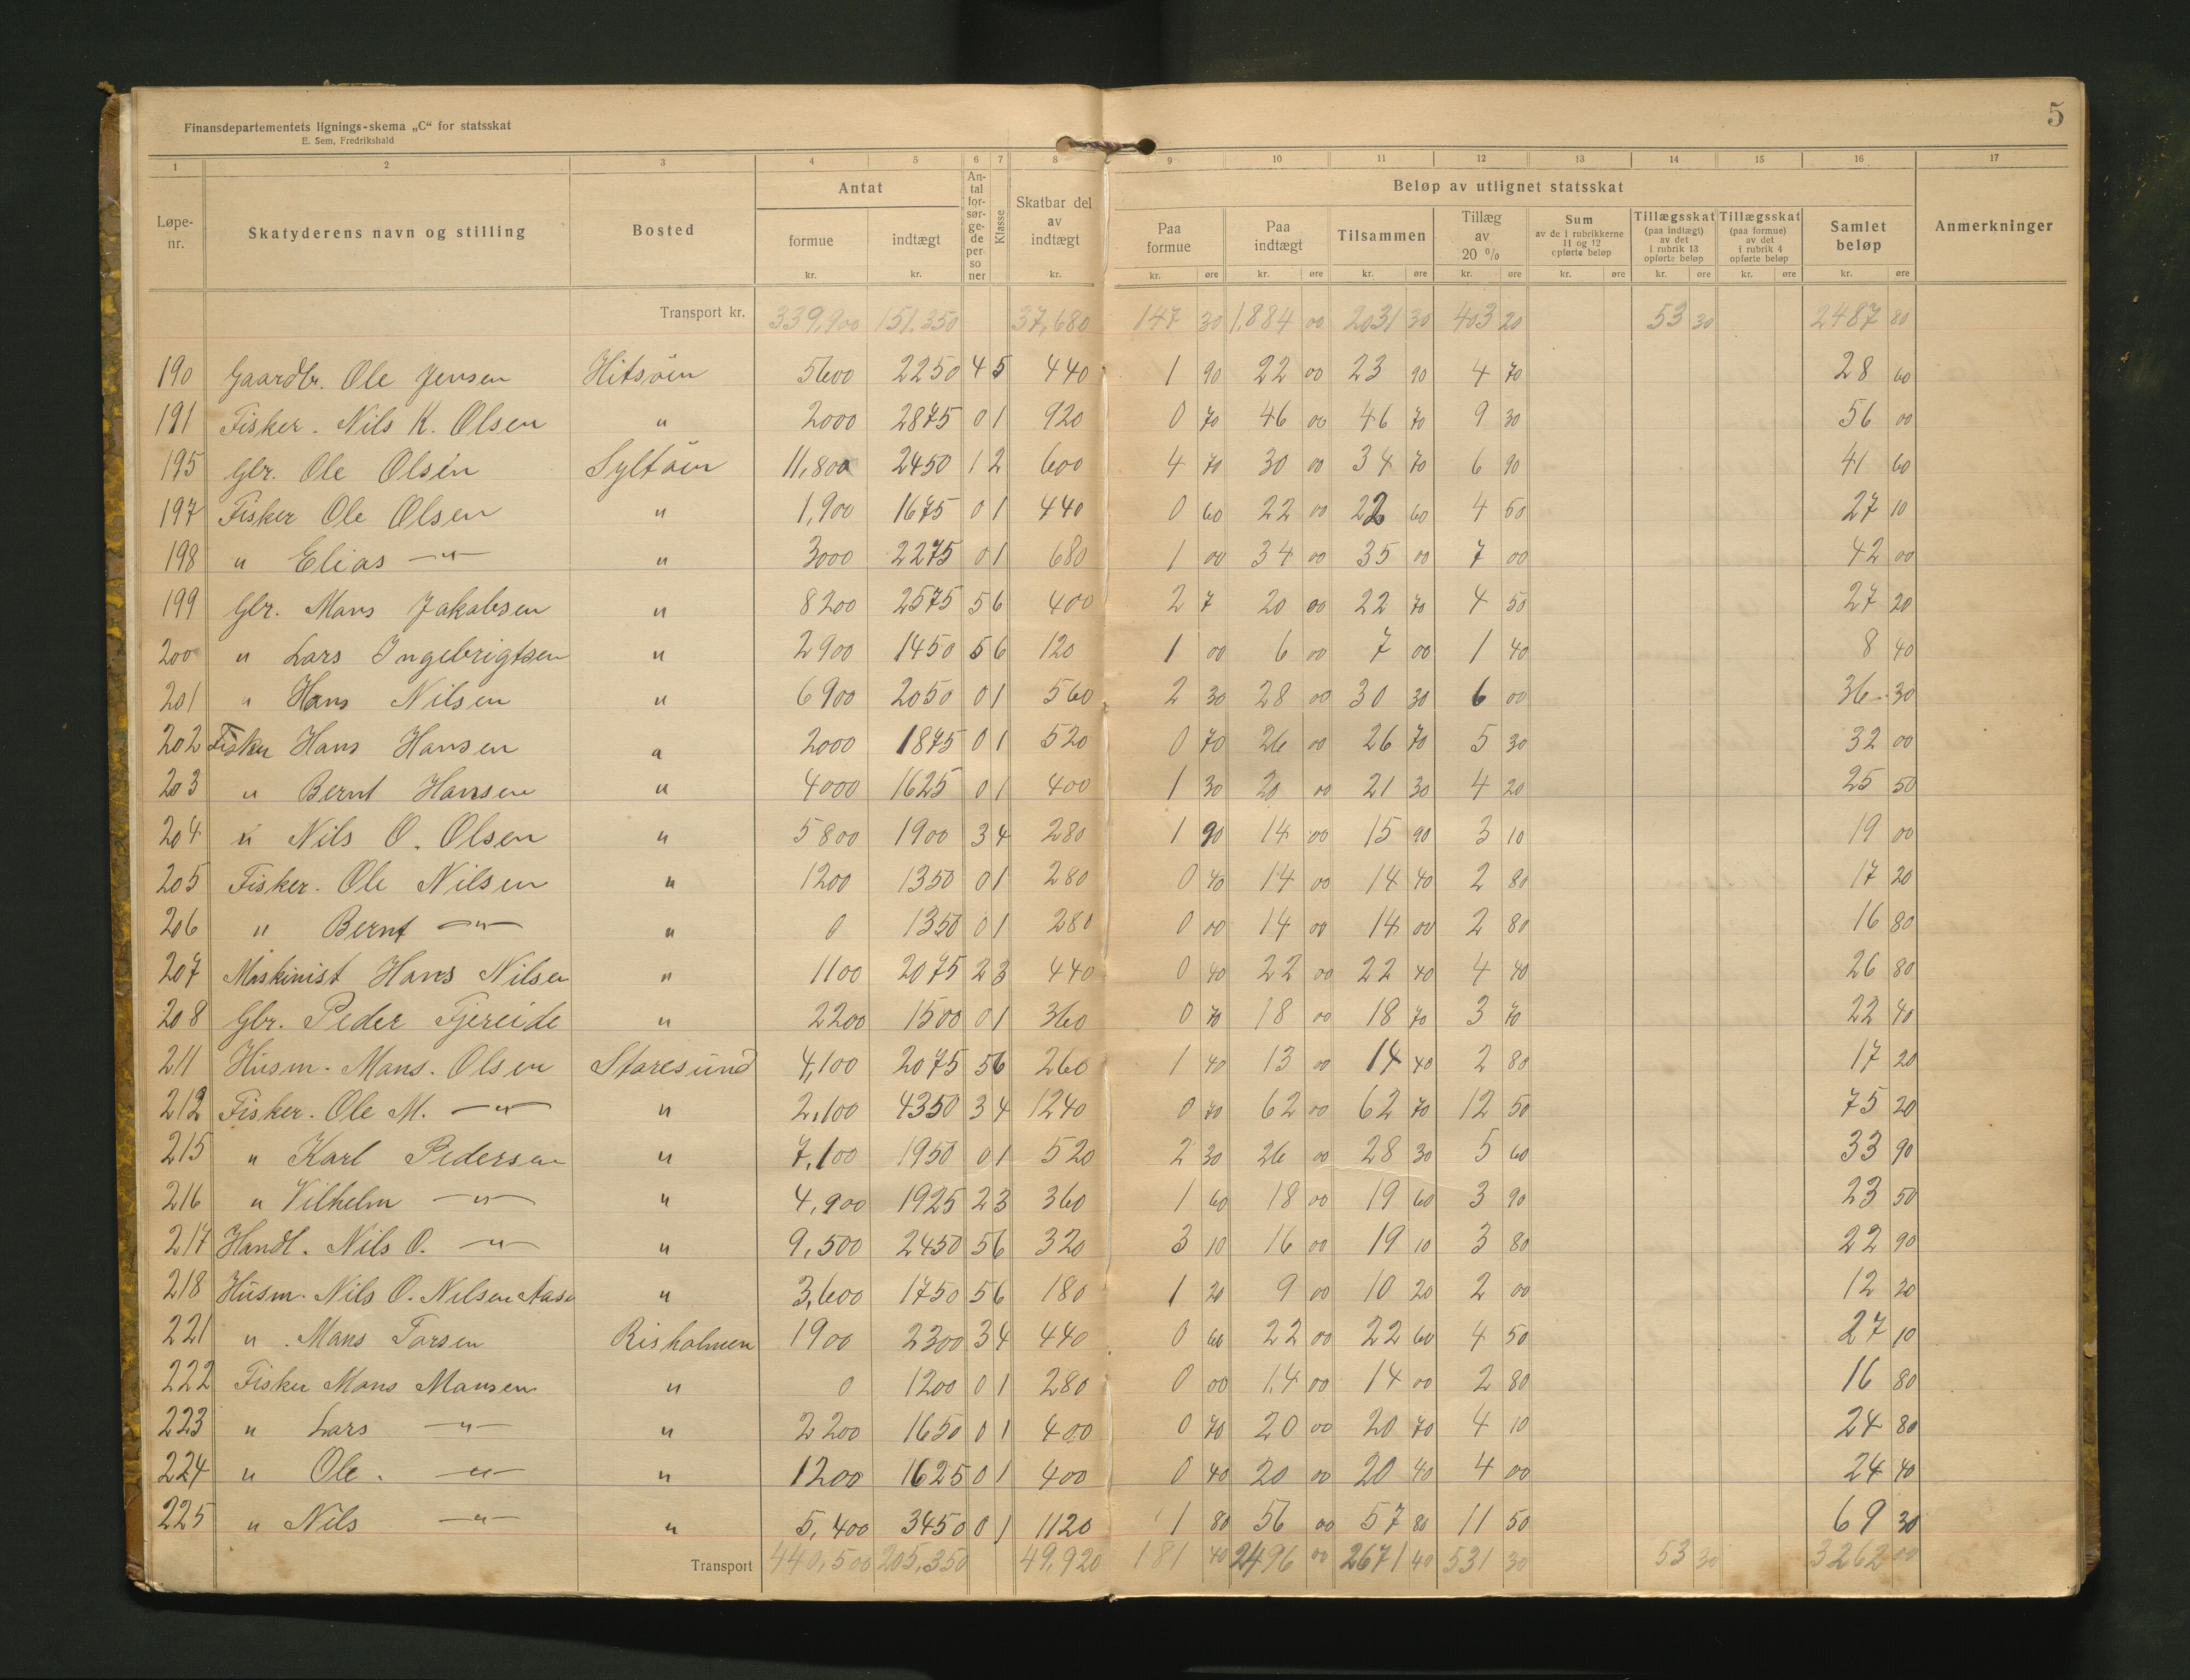 5
Finansdepartementets lignings-skema „C“ for statsskat
E. Sem, Fredrikshald
1 2 3 4 5 6 7 8 9 10 11 12 13 14 15 16 17
Løpe-nr. Skatyderens navn og stilling Bosted Antat formue kr. indtægt kr. Antal forsørgede personer Klasse Skatbar del av indtægt kr. Beløp av utlignet statsskat Paa formue kr. øre Paa indtægt kr. øre Tilsammen kr. øre Tillæg av 20 % kr. øre Sum av de i rubrikkerne 11 og 12 opførte beløp kr. øre Tillægsskat (paa indtægt) av det i rubrik 13 opførte beløp kr. øre Tillægsskat (paa formue) av det i rubrik 4 opførte beløp kr. øre Samlet beløp kr. øre Anmerkninger
Transport kr. 339,900 151,350 37,680 147 30 1,884 00 2031 30 403 20 53 30 2487 80
190 Gaardbr. Ole Jensen Hitsöen 5600 2250 4 5 440 1 90 22 00 23 90 4 70 28 60
191 Fisker. Nils K. Olsen " 2000 2875 0 1 920 0 70 46 00 46 70 9 30 56 00
195 Gbr. Ole Olsen Syltöen 11,800 2450 1 2 600 4 70 30 00 34 70 6 90 41 60
197 Fisker Ole Olsen " 1,900 1675 0 1 440 0 60 22 00 22 60 4 50 27 10
198 " Elias —"— " 3000 2275 0 1 680 1 00 34 00 35 00 7 00 42 00
199 Gbr. Mans Jakobsen " 8200 2575 5 6 400 2 7 20 00 22 70 4 50 27 20
200 " Lars Ingebrigtsen " 2900 1450 5 6 120 1 00 6 00 7 00 1 40 8 40
201 " Hans Nilsen " 6900 2050 0 1 560 2 30 28 00 30 30 6 00 36 30
202 Fisker Hans Hansen " 2000 1875 0 1 520 0 70 26 00 26 70 5 30 32 00
203 " Bernt Hansen " 4000 1625 0 1 400 1 30 20 00 21 30 4 20 25 50
204 " Nils O. Olsen " 5800 1900 3 4 280 1 90 14 00 15 90 3 10 19 00
205 Fisker. Ole Nilsen " 1200 1350 0 1 280 0 40 14 00 14 40 2 80 17 20
206 " Bernt —"— " 0 1350 0 1 280 0 00 14 00 14 00 2 80 16 80
207 Maskinist Hans Nilsen " 1100 2075 2 3 440 0 40 22 00 22 40 4 40 26 80
208 Gbr. Peder Fjereide " 2200 1500 0 1 360 0 70 18 00 18 70 3 70 22 40
211 Husm. Mans. Olsen Staresund 4,100 2075 5 6 260 1 40 13 00 14 40 2 80 17 20
212 Fisker. Ole M. —"— " 2,100 4350 3 4 1240 0 70 62 00 62 70 12 50 75 20
215 " Karl Pedersen " 7,100 1950 0 1 520 2 30 26 00 28 30 5 60 33 90
216 " Vilhelm —"— " 4,900 1925 2 3 360 1 60 18 00 19 60 3 90 23 50
217 Handl. Nils O. —"— " 9,500 2450 5 6 320 3 10 16 00 19 10 3 80 22 90
218 Husm. Nils O. Nilsen Aase " 3,600 1750 5 6 180 1 20 9 00 10 20 2 00 12 20
221 " Mans Torsen Risholmen 1900 2300 3 4 440 0 60 22 00 22 60 4 50 27 10
222 Fisker Mons Mansen " 0 1200 0 1 280 0 00 14 00 14 00 2 80 16 80
223 " Lars —"— " 2200 1650 0 1 400 0 70 20 00 20 70 4 10 24 80
224 " Ole. —"— " 1200 1625 0 1 400 0 40 20 00 20 40 4 00 24 40
225 " Nils —"— " 5,400 3450 0 1 1120 1 80 56 00 57 80 11 50 69 30
Transport 440,500 205,350 49,920 181 40 2496 00 2671 40 531 30 53 30 3262 00